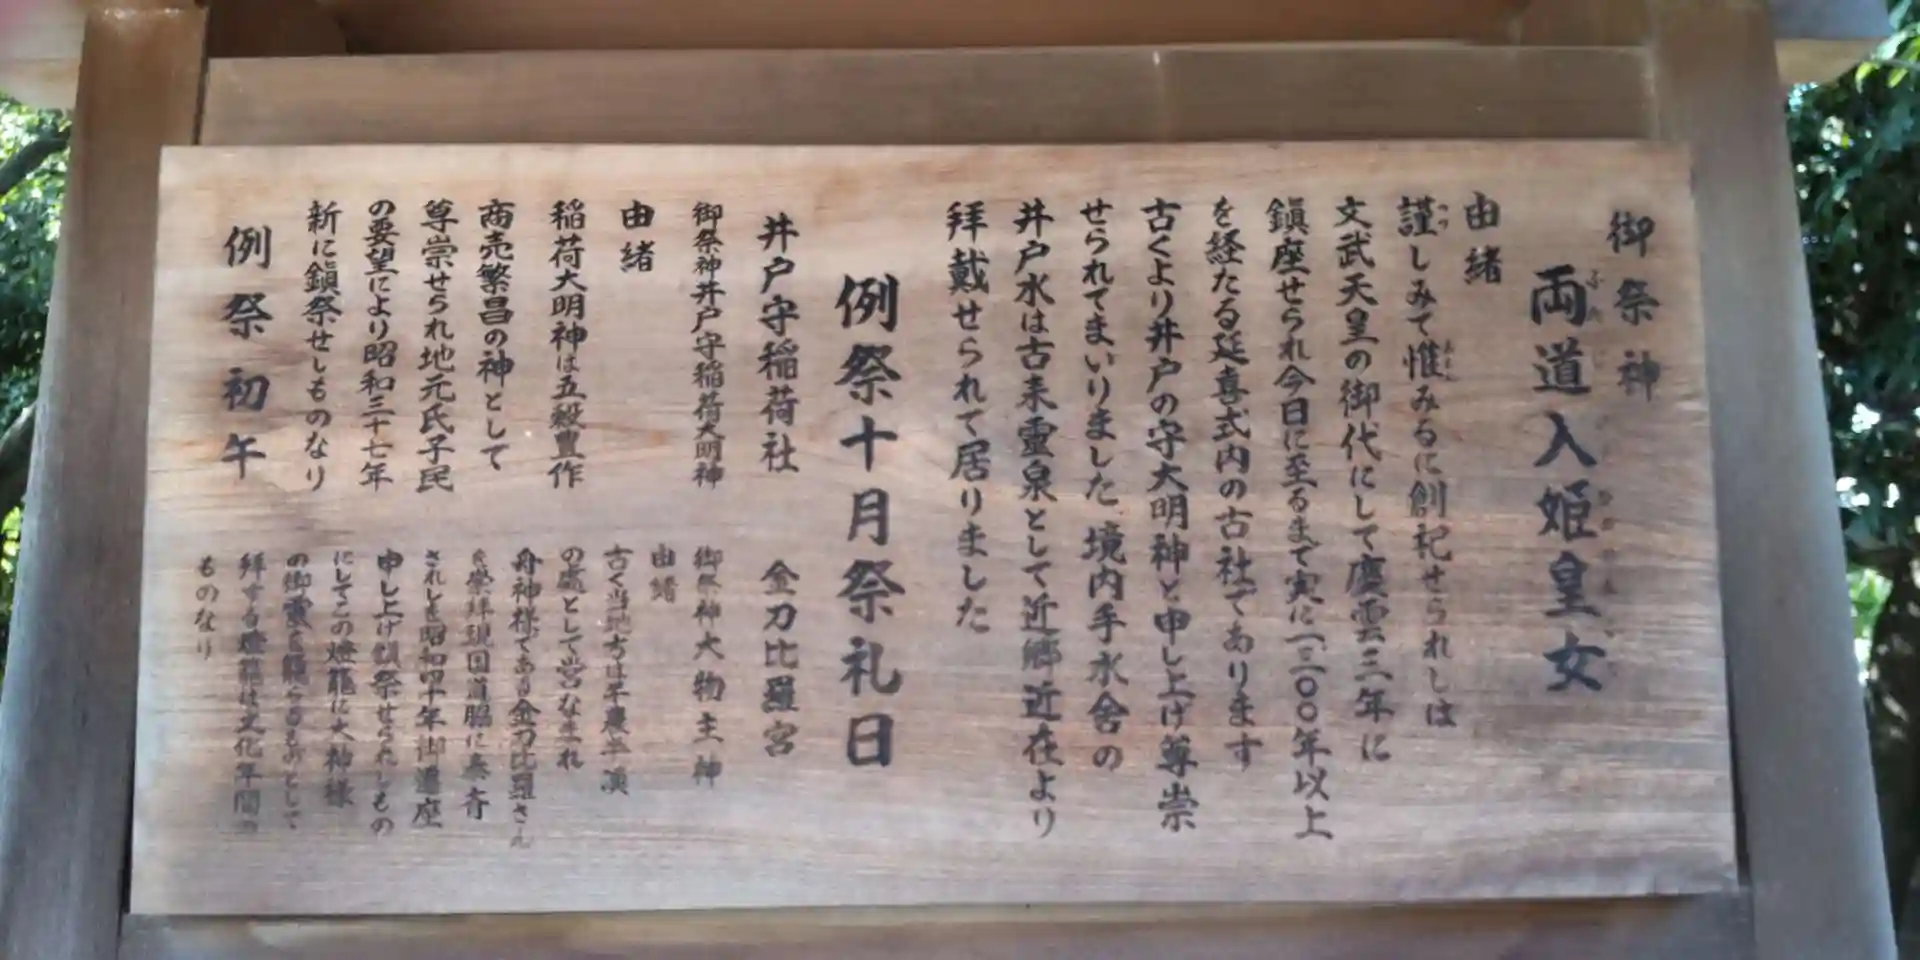 御祭神
両道入姫皇女
由緒
謹しみて惟みるに創祀せられしは
文武天皇の御代にして慶雲三年に
鎮座せられ今日に至るまで実に一三〇〇年以上
を経たる延喜式内の古社であります
古くより井戸の守大明神と申し上げ尊崇
せられてまいりました境内手水舎の
井戸水は古来霊泉として近郷近在より
拝戴せられて居りました
例祭十月祭礼日
井戸守稲荷社
御祭神井戸守稲荷大明神
由緒
稲荷大明神は五穀豊作
商売繁昌の神として
尊崇せられ地元氏子民
の要望により昭和三十七年
新に鎮祭せしものなり
例祭初午
金刀比羅宮
御祭神大物主神
由緒
古く当地方は半農半漁
の處として営なまれ
舟神様である金刀比羅さん
を崇拝現国道脇に奉斉
されしを昭和四十年御遷座
申し上げ鎮祭せられしもの
にしてこの燈籠に大神様
の御霊を籠らるものとして
拝する燈籠は文化年間の
ものなり